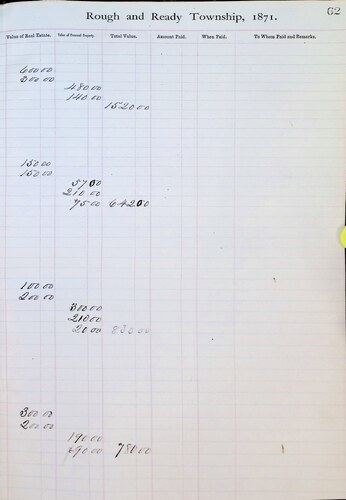 62
Rough and Ready Township, 1871.
Value of Real Estate. Value of Personal Property. Total Value. Amount Paid. When Paid. To Whom Paid and Remarks.
600 00
300 00
480 00
140 00
1520 00
150 00
150 00
57 00
210 00
75 00 642 00
100 00
200 00
300 00
210 00
20 00 830 00
300 00
200 00
190 00
90 00 780 00